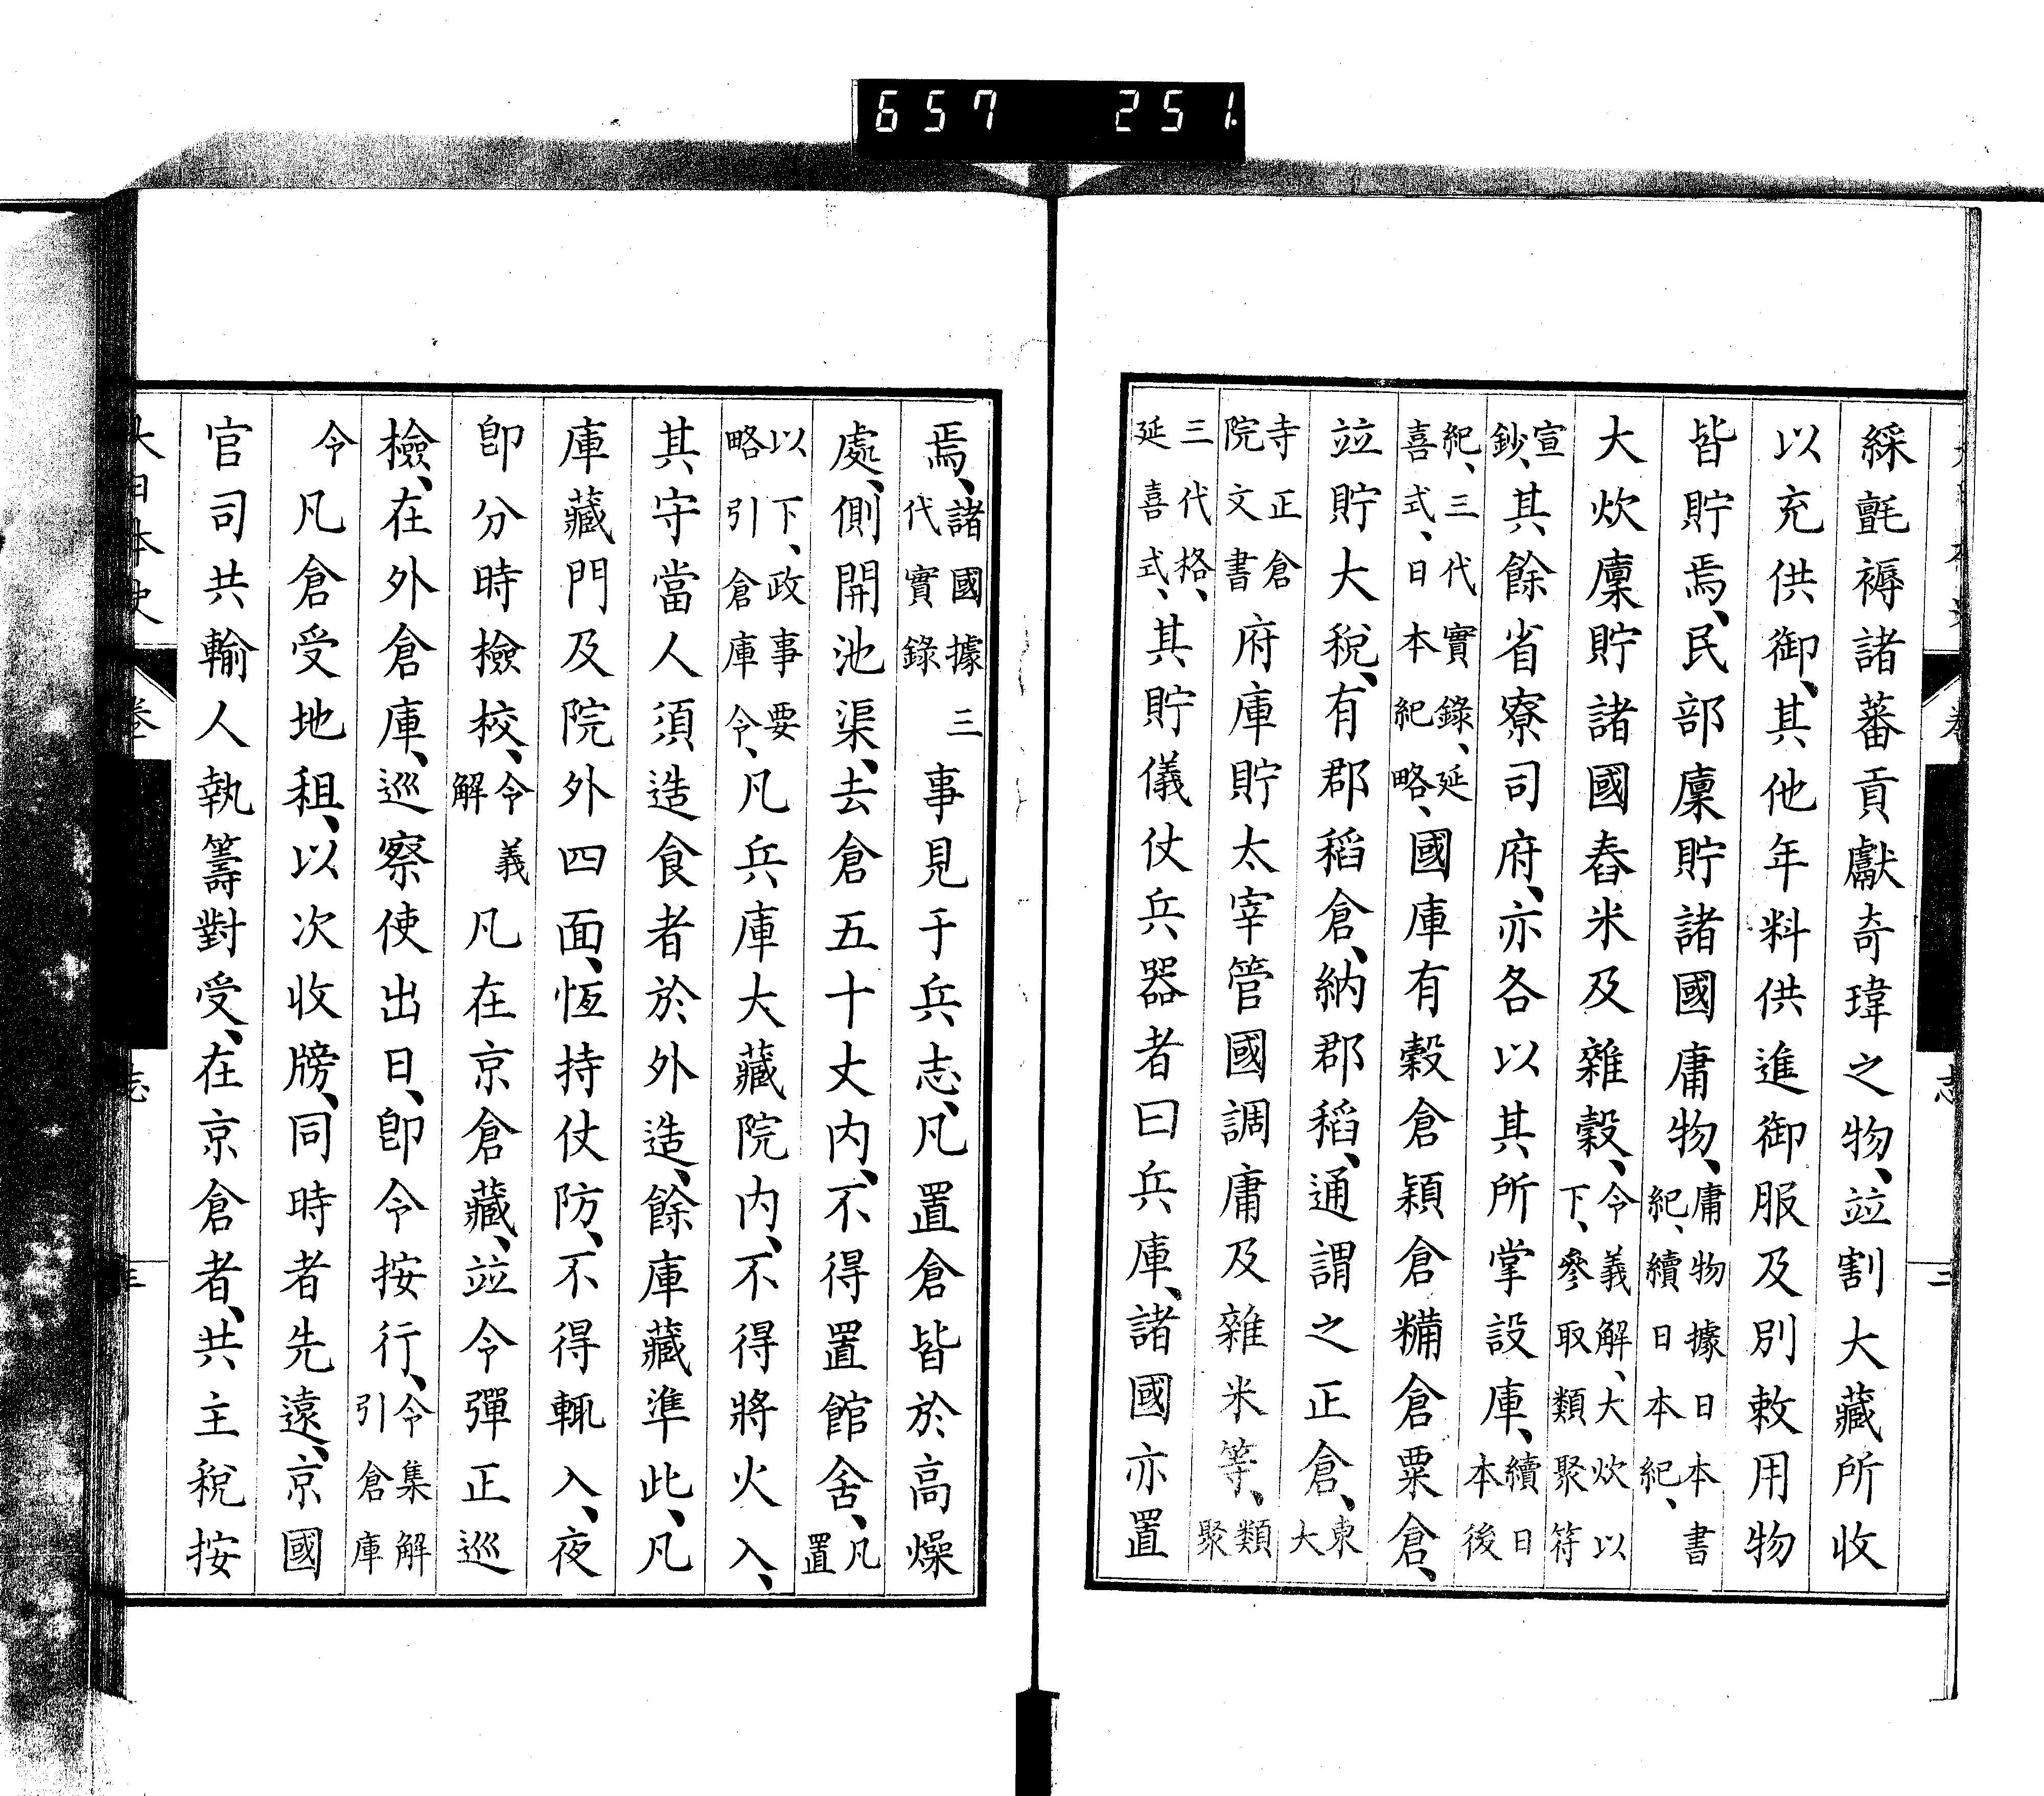 657 251
綵氈褥諸蕃貢獻奇瑋之物、竝割大藏所收
以充供御、其他年料供進御服及別敕用物
皆貯焉、民部廩貯諸國庸物、庸物據日本書紀、續日本紀、
大炊廩貯諸國舂米及雜穀、令義解、大炊以下、參取類聚符
宣鈔、其餘省寮司府、亦各以其所掌設庫、續日本後
紀、三代實錄、延喜式、日本紀略、國庫有穀倉穎倉糒倉粟倉、
竝貯大稅、有郡稻倉、納郡稻、通謂之正倉、東大
寺正倉院文書府庫貯太宰管國調庸及雜米等、類聚
三代格、延喜式、其貯儀仗兵器者曰兵庫、諸國亦置
焉、諸國據三代實錄事見于兵志、凡置倉皆於高燥
處、側開池渠、去倉五十丈内、不得置館舍、凡置
以下、政事要略引倉庫令、凡兵庫大藏院内、不得將火入、
其守當人須造食者於外造、餘庫藏準此、凡
庫藏門及院外四面、恆持仗防、不得輒入、夜
卽分時檢校、令義解凡在京倉藏、竝令彈正巡
檢、在外倉庫、巡察使出日、卽令按行、令集解引倉庫
令凡倉受地租、以次收牓、同時者先遠、京國
官司共輸人執籌對受、在京倉者、共主稅按
大日本史 卷 志